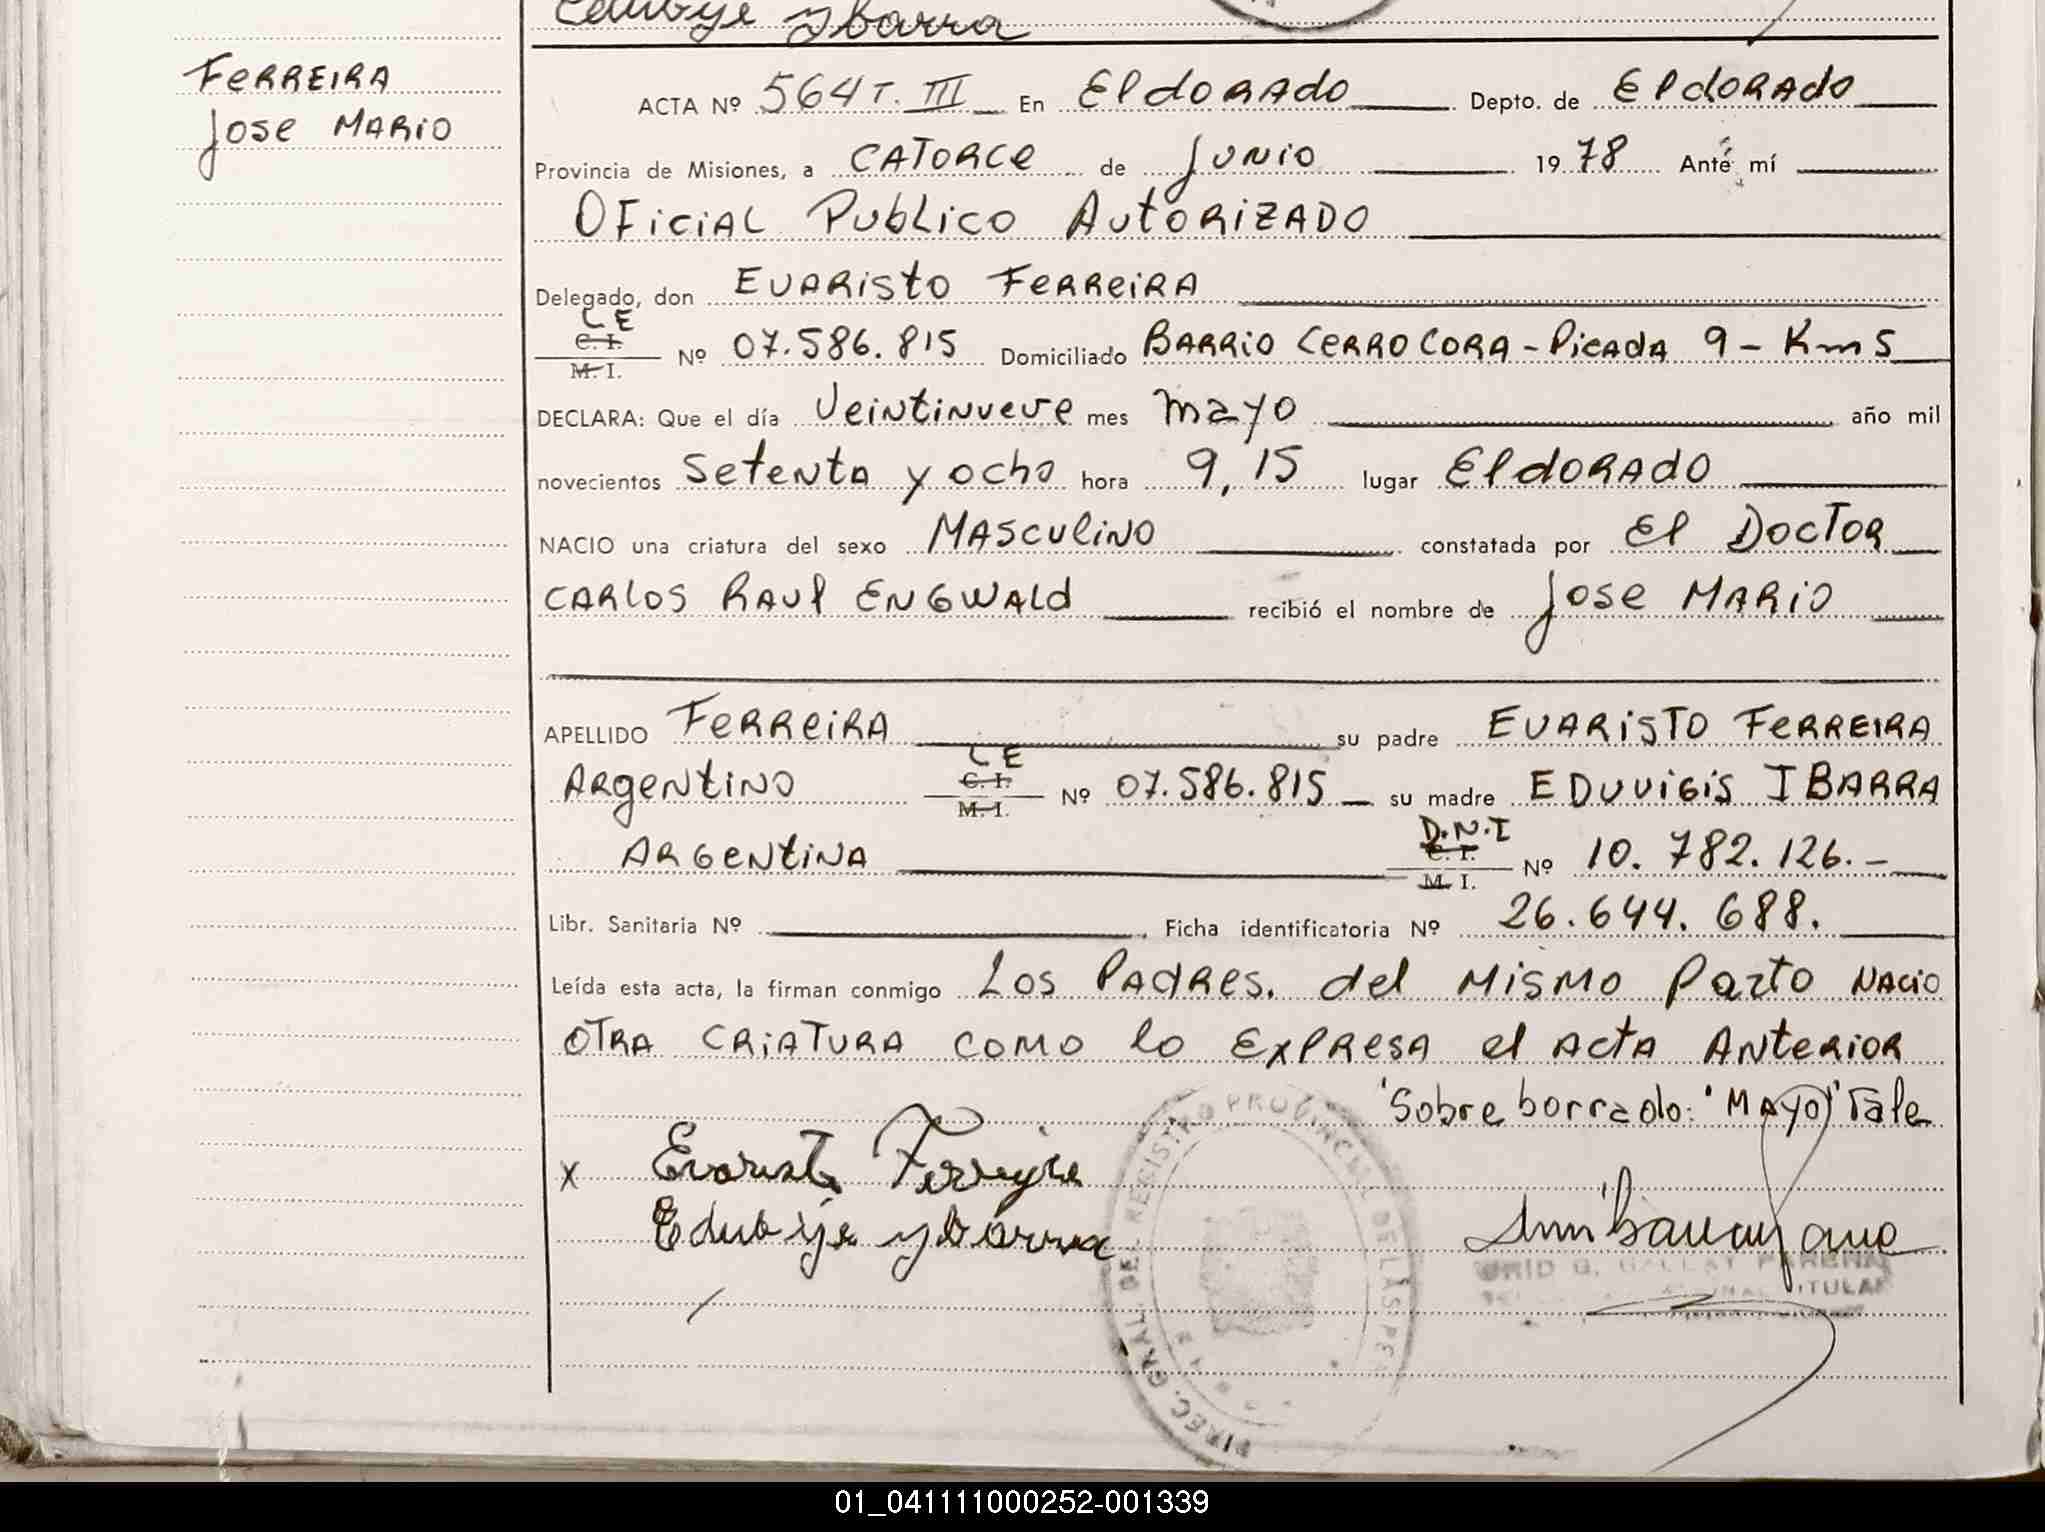 Edubije Ybarra
FERREIRA
Jose MARIO
ACTA Nº 564 T. III En Eldorado Depto. de Eldorado
Provincia de Misiones, a CATORCE de Junio 1978 Ante mí
OFICIAL PUBLICO AUTORIZADO
Delegado, don EVARISTO FERREIRA
L E
C. I.
M. I. Nº 07.586.815 Domiciliado BARRIO CERRO CORA - Picada 9 - Km 5
DECLARA: Que el día Veintinueve mes mayo año mil
novecientos Setenta y ocho hora 9,15 lugar Eldorado
NACIO una criatura del sexo MASCULINO constatada por El DOCTOR
CARLOS RAUL ENGWALD recibió el nombre de Jose MARIO
APELLIDO FERREIRA su padre EVARISTO FERREIRA
L E
ARGENTINO C. I. M. I. Nº 07.586.815 su madre EDUVIGIS IBARRA
D.N.I
ARGENTINA C. I. M. I. Nº 10.782.126.-
Libr. Sanitaria Nº Ficha identificatoria Nº 26.644.688.
Leída esta acta, la firman conmigo Los PADRES. del MISMO Parto NACIO
OTRA CRIATURA COMO lo EXPRESA el ACTA ANTERIOR
"Sobre borrado: "MAYO" Vale
x Evaristo Ferreyra
Edubije Ybarra
DIREC. GRAL. DEL REGISTRO PROVINCIAL DE LAS PE
TITULAR
01_041111000252-001339